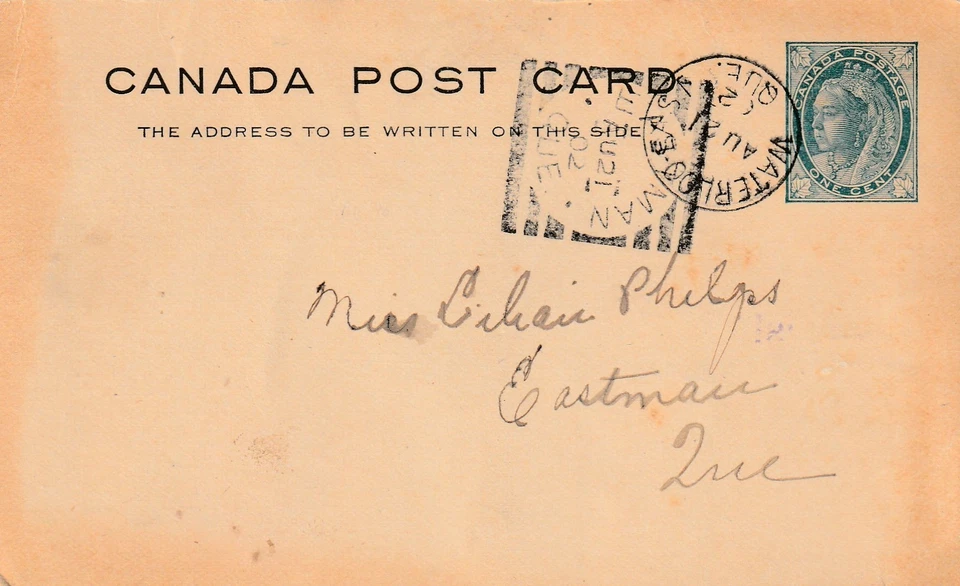 CANADA POST CARD
THE ADDRESS TO BE WRITTEN ON THIS SIDE
CANADA POSTAGE
ONE CENT
WATERLOO
QUE.
AU 21
MAN
AU 21
02
QUE.
Miss Lilian Phelps
Eastman
Que